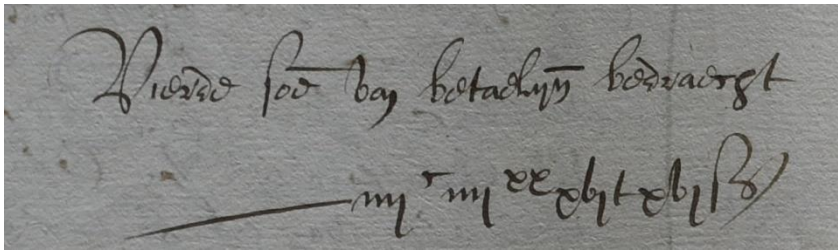 Vierde so͞e van betaelin̄ bedraecht
iiijᶜ iiijˣˣ xvj t xvj ß